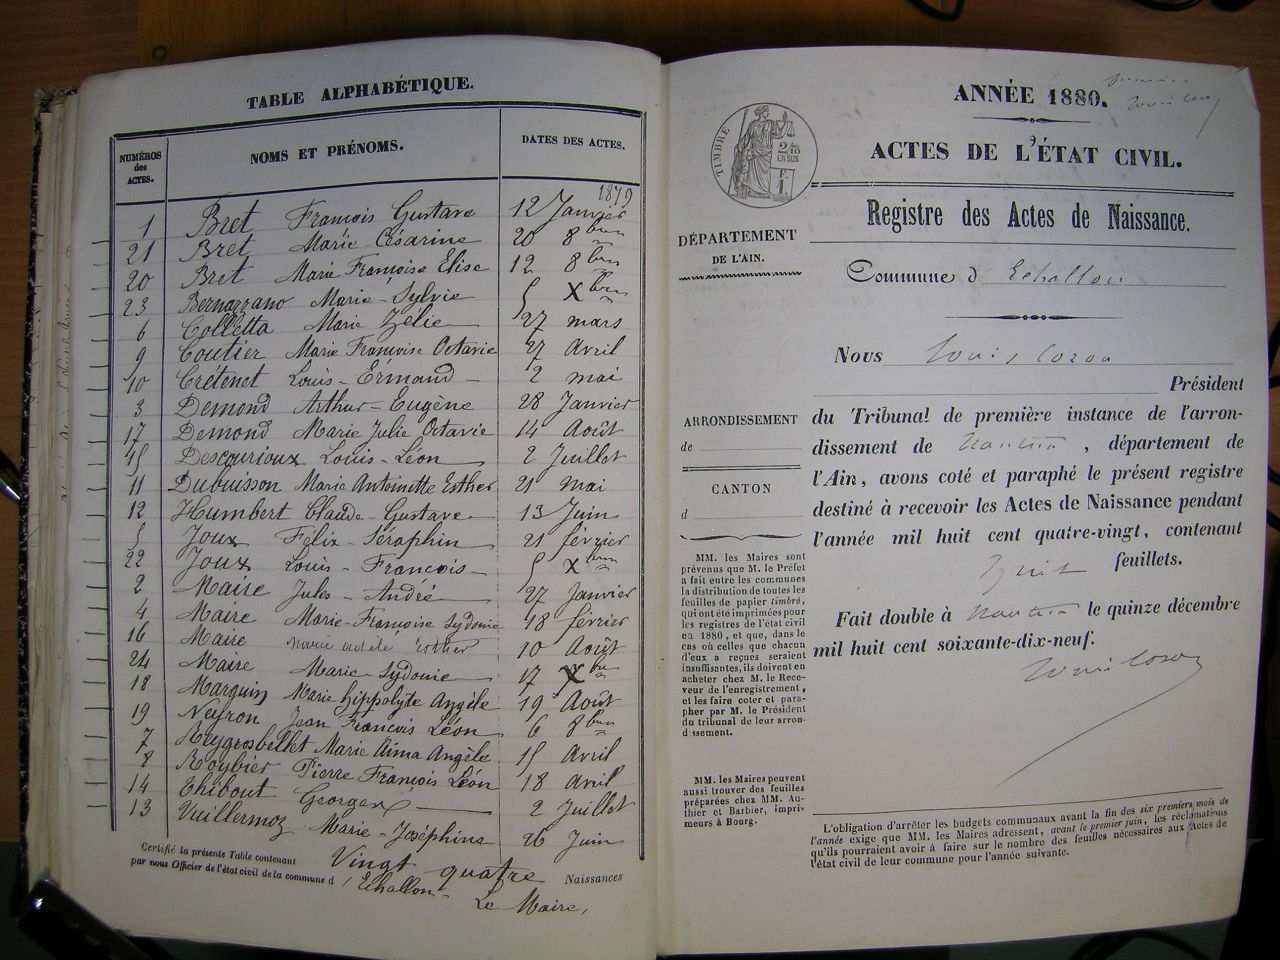 TABLE ALPHABÉTIQUE.
NUMÉROS des ACTES.
NOMS ET PRÉNOMS.
DATES DES ACTES.
1879
1 Bret François Gustave 12 Janvier
21 Bret Marie Césarine 20 8bre
20 Bret Marie Françoise Elise 12 8bre
23 Bernazzano Marie-Sylvie 5 Xbre
6 Colletta Marie Zélie 27 mars
9 Coutier Marie Françoise Octavie 27 Avril
10 Crétenet Louis-Ermand 2 mai
3 Demond Arthur-Eugène 28 Janvier
17 Demond Marie Julie Octavie 14 Août
15 Descourioux Louis-Léon 2 Juillet
11 Dubuisson Marie Antoinette Esther 21 mai
12 Humbert Claude-Gustave 13 Juin
5 Joux Félix-Séraphin 21 février
22 Joux Louis-François 5 Xbre
2 Maire Jules-André 27 Janvier
4 Maire Marie-Françoise Sydonie 18 février
16 Maire marie adèle Esther 10 Août
24 Maire Marie-Sydonie 17 Xbre
18 Marquin Marie hippolyte Angèle 19 Août
19 Neyron Jean François Léon 6 8bre
7 Reygrosbellet Marie Aima Angèle 15 Avril
8 Roybier Pierre François Léon 18 Avril
14 Thibout Georges 2 Juillet
13 Vuillermoz Marie-Joséphine 26 Juin
Certifié la présente Table contenant Vingt quatre Naissances
par nous Officier de l'état civil de la commune d'Echallon
Le Maire,
ANNÉE 1880.
TIMBRE
2/10
EN SUS
F.
1.
ACTES DE L'ÉTAT CIVIL.
Registre des Actes de Naissance.
DÉPARTEMENT
DE L'AIN.
Commune d'Echallon
Nous Louis Cozon
Président
ARRONDISSEMENT
de
CANTON
d
du Tribunal de première instance de l'arron-
dissement de Nantua, département de
l'Ain, avons coté et paraphé le présent registre
destiné à recevoir les Actes de Naissance pendant
l'année mil huit cent quatre-vingt, contenant
huit feuillets.
Fait double à Nantua le quinze décembre
mil huit cent soixante-dix-neuf.
Louis Cozon
MM. les Maires sont
prévenus que M. le Préfet
a fait entre les communes
la distribution de toutes les
feuilles de papier timbré,
qui ont été imprimées pour
les registres de l'état civil
en 1880, et que, dans le
cas où celles que chacun
d'eux a reçues seraient
insuffisantes, ils doivent en
acheter chez M. le Rece-
veur de l'enregistrement,
et les faire coter et para-
pher par M. le Président
du tribunal de leur arron-
dissement.
MM. les Maires peuvent
aussi trouver des feuilles
préparées chez MM. Au-
thier et Barbier, impri-
meurs à Bourg.
L'obligation d'arrêter les budgets communaux avant la fin des six premiers mois de
l'année exige que MM. les Maires adressent, avant le premier juin, les réclamations
qu'ils pourraient avoir à faire sur le nombre des feuilles nécessaires aux Actes de
l'état civil de leur commune pour l'année suivante.